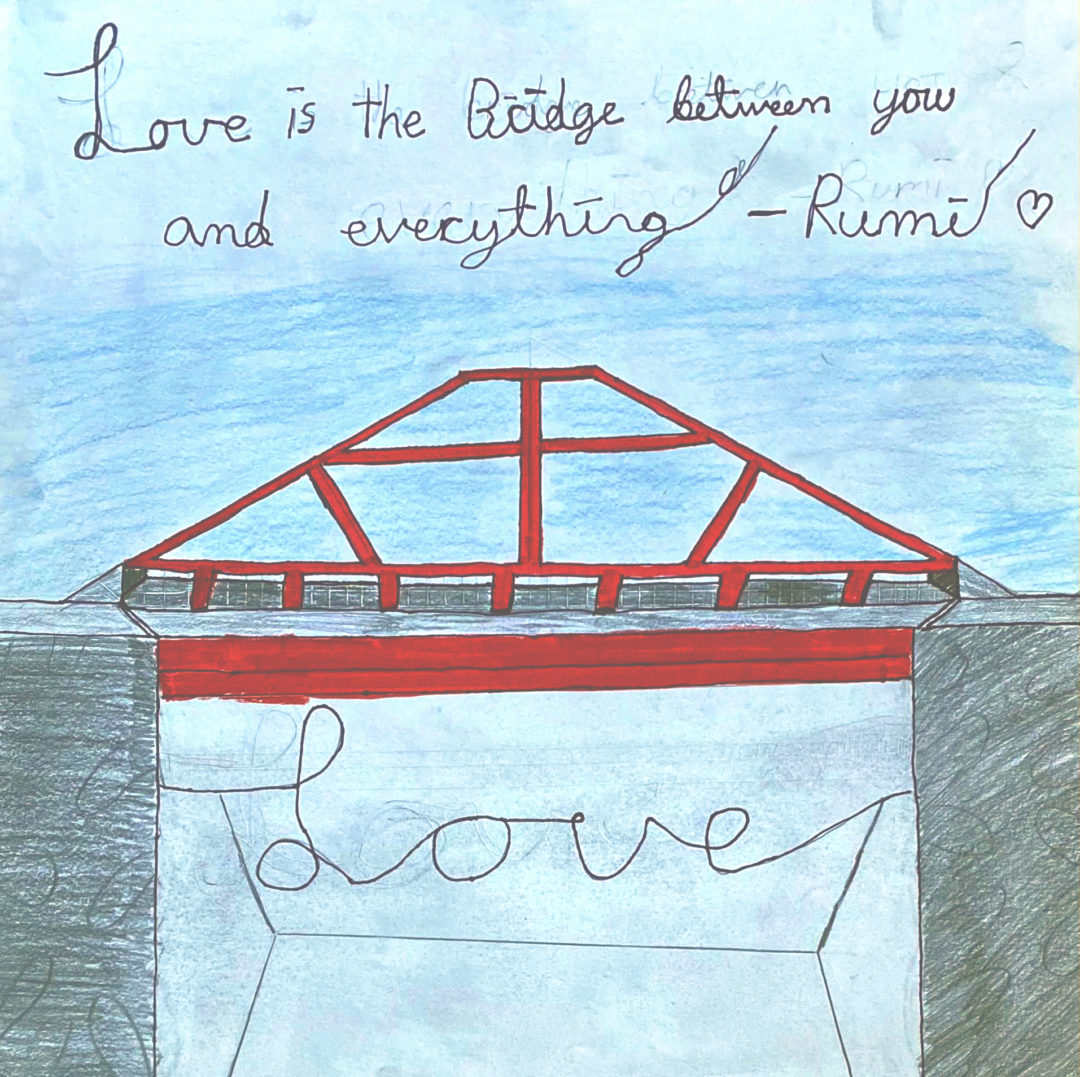 Love is the Bridge between you
and everything - Rumi ♡
Love